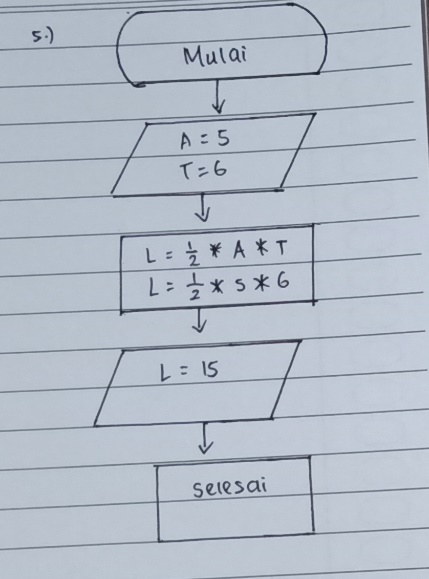 5.)
Mulai
A = 5
T = 6
L = 1/2 * A * T
L = 1/2 * 5 * 6
L = 15
selesai